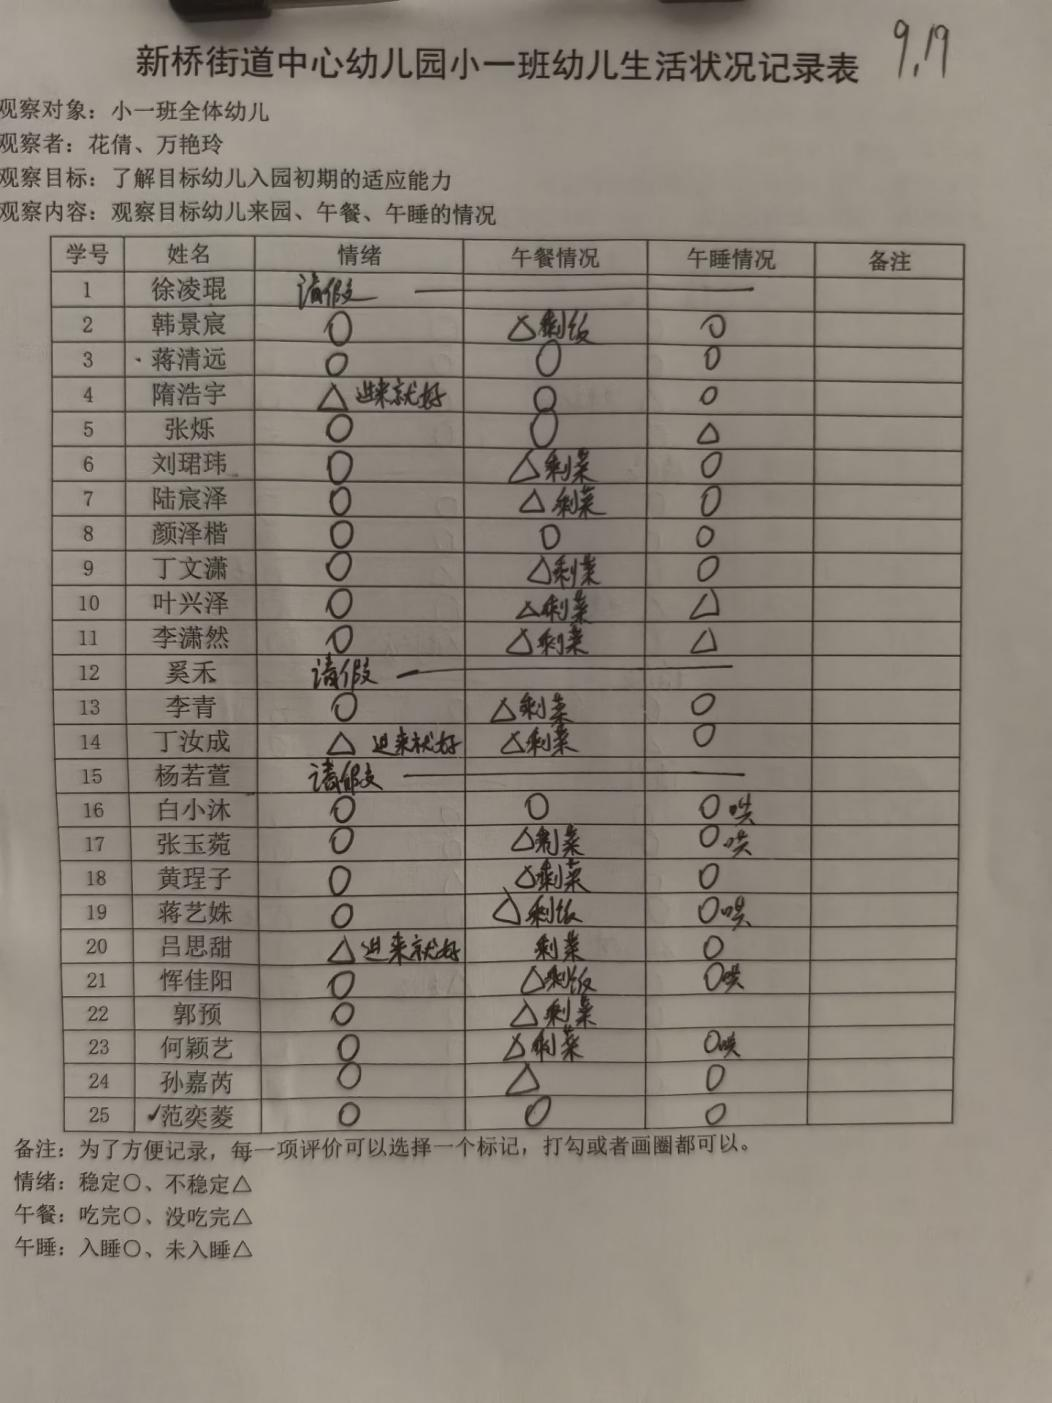 新桥街道中心幼儿园小一班幼儿生活状况记录表 9.19
观察对象：小一班全体幼儿
观察者：花倩、万艳玲
观察目标：了解目标幼儿入园初期的适应能力
观察内容：观察目标幼儿来园、午餐、午睡的情况
学号 姓名 情绪 午餐情况 午睡情况 备注
1 徐凌琨 请假
2 韩景宸 ○ △剩饭 ○
3 蒋清远 ○ ○ ○
4 隋浩宇 △ 进来就好 ○ ○
5 张烁 ○ ○ △
6 刘珺玮 ○ △剩菜 ○
7 陆宸泽 ○ △剩菜 ○
8 颜泽楷 ○ ○ ○
9 丁文潇 ○ △剩菜 ○
10 叶兴泽 ○ △剩菜 △
11 李潇然 ○ △剩菜 △
12 奚禾 请假
13 李青 ○ △剩菜 ○
14 丁汝成 △ 进来就好 △剩菜 ○
15 杨若萱 请假
16 白小沐 ○ ○ ○哄
17 张玉菀 ○ △剩菜 ○哄
18 黄珵子 ○ △剩菜 ○
19 蒋艺姝 ○ △剩饭 ○哄
20 吕思甜 △进来就好 剩菜 ○
21 恽佳阳 ○ △剩饭 ○哄
22 郭预 ○ △剩菜
23 何颖艺 ○ △剩菜 ○哄
24 孙嘉芮 ○ △ ○
25 ✓范奕菱 ○ ○ ○
备注：为了方便记录，每一项评价可以选择一个标记，打勾或者画圈都可以。
情绪：稳定○、不稳定△
午餐：吃完○、没吃完△
午睡：入睡○、未入睡△